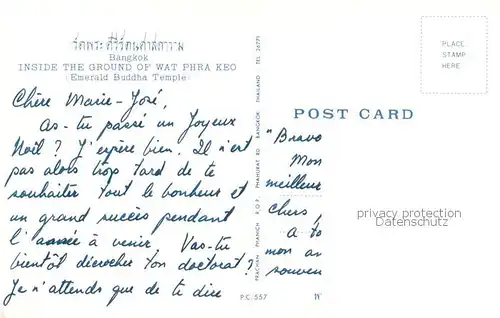 วัดพระศรีรัตนศาสดาราม
Bangkok
INSIDE THE GROUND OF WAT PHRA KEO
(Emerald Buddha Temple)
Chère Marie-José,
As-tu passé un Joyeux
Noël ? J'espère bien. Il n'est
pas alors trop tard de te
souhaiter tout le bonheur et
un grand succès pendant
l'année à venir. Vas-tu
bientôt décrocher ton doctorat ?
Je n'attends que de te dire
PRACHAN PHANICH P.O.P. PHAHURAT RD. BANGKOK THAILAND TEL. 26771
P.C. 557
PLACE
STAMP
HERE
POST CARD
"Bravo
Mon
meilleur
chers,
A to
mon am
souven
privacy protection
Datenschutz